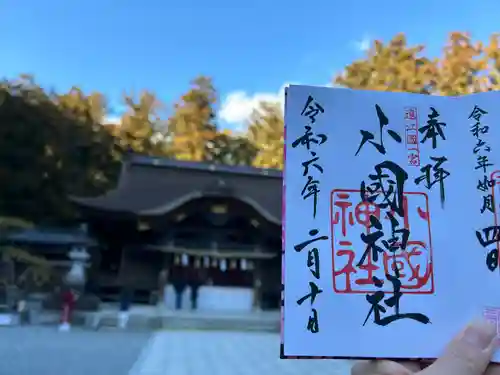 奉拝
遠江國一宮
小國神社
小國神社
令和六年二月十日
令和六年如月四日